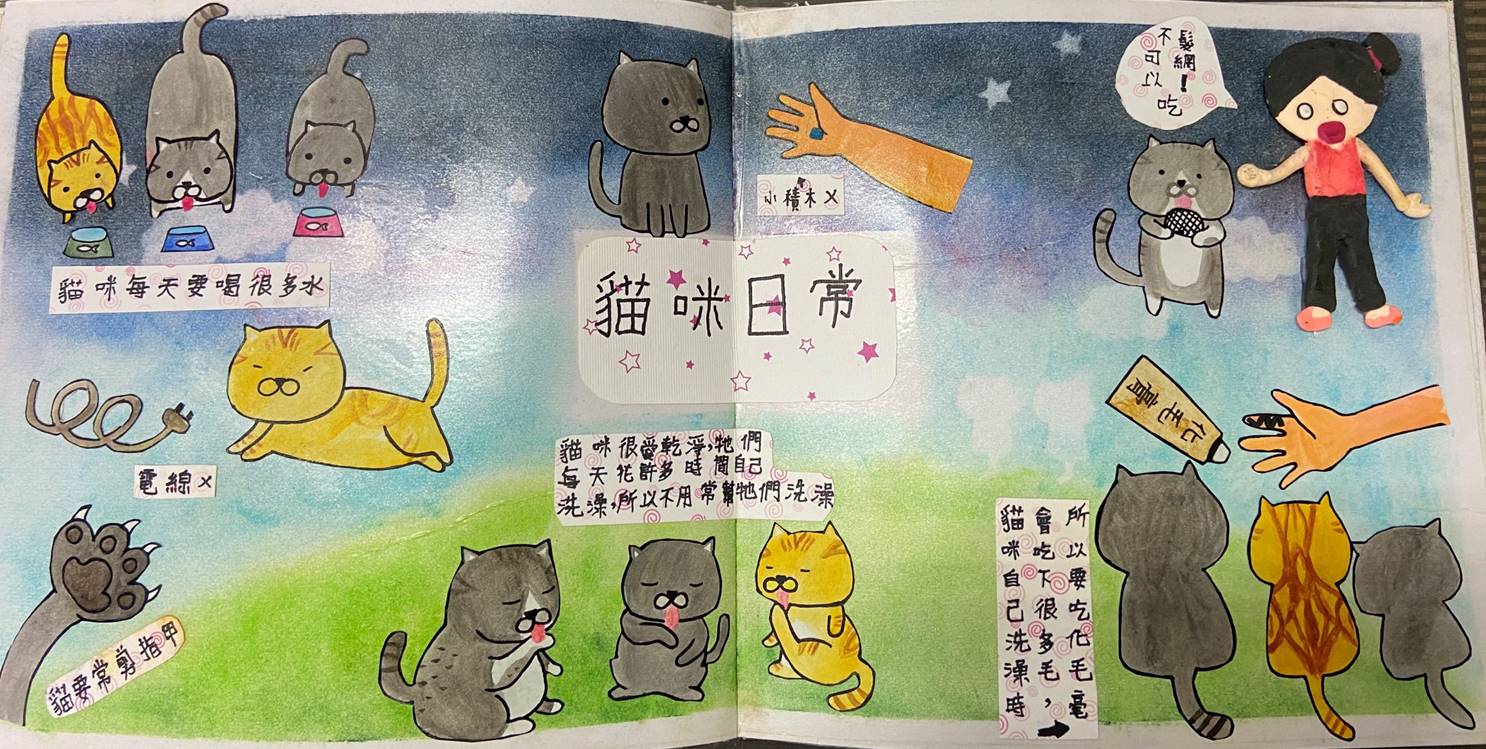 貓咪每天要喝很多水
小積木X
髮網!
不可以吃
貓咪日常
電線X
化毛膏
貓咪很愛乾淨,牠們
每天花許多時間自己
洗澡,所以不用常幫牠們洗澡
貓要常剪指甲
貓咪自己洗澡時
會吃下很多毛,
所以要吃化毛毫